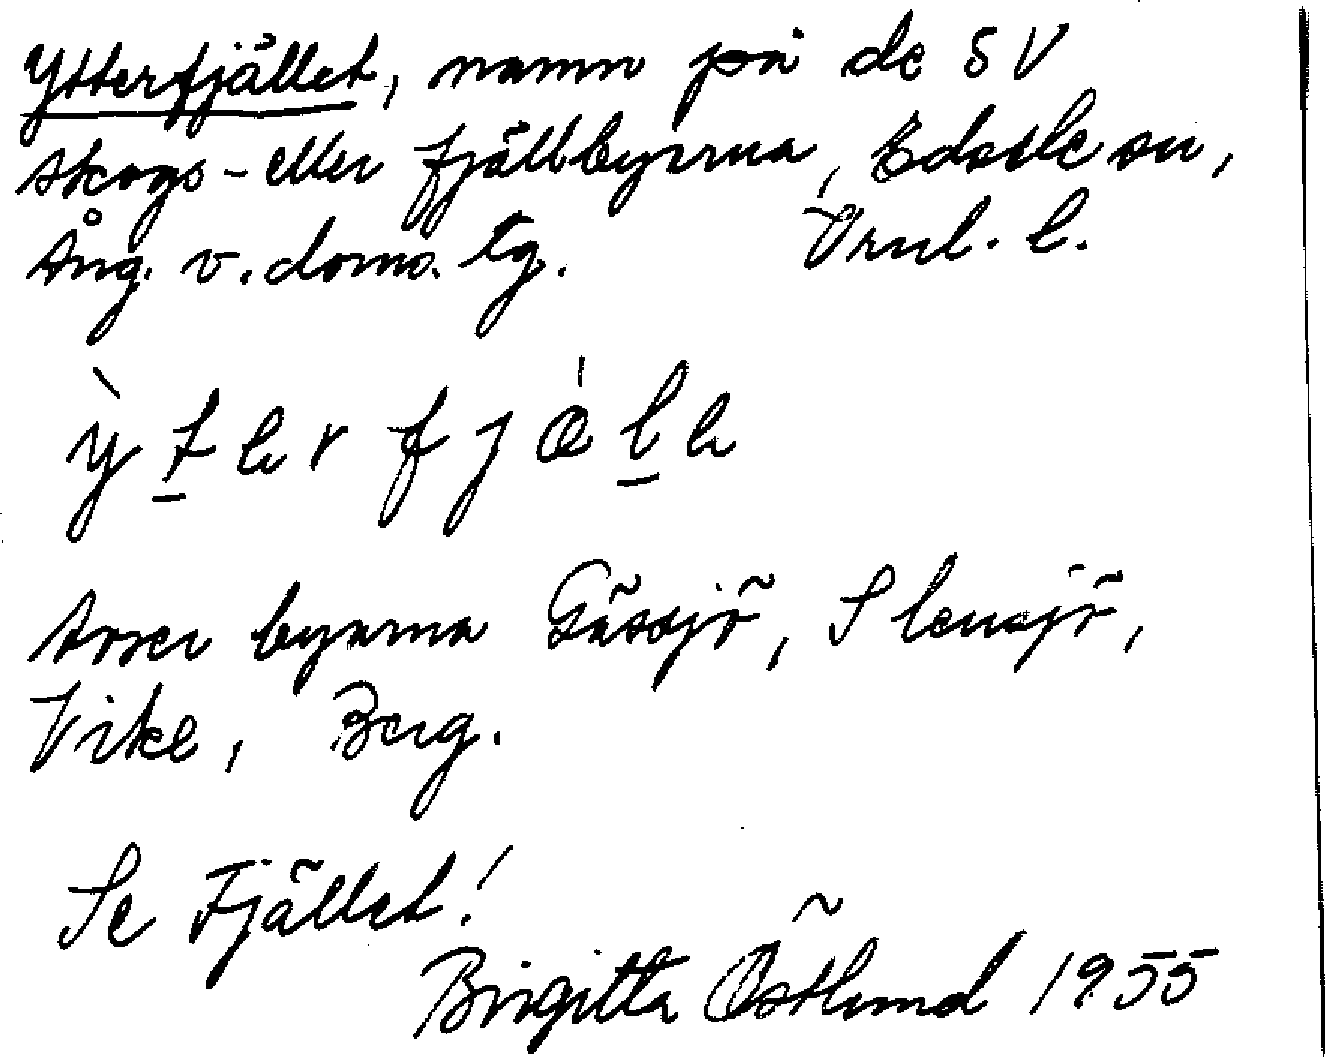 Ytterfjället, namn på de SV
skogs- eller fjällbyarna, Edsele sn,
Ång. v. doms. tg.
ỳ t e r f j æ̀ l e
Avser byarna Gåssjö, Stensjö,
Vike, Berg.
Se Fjället!
Birgitta Östlund 1955